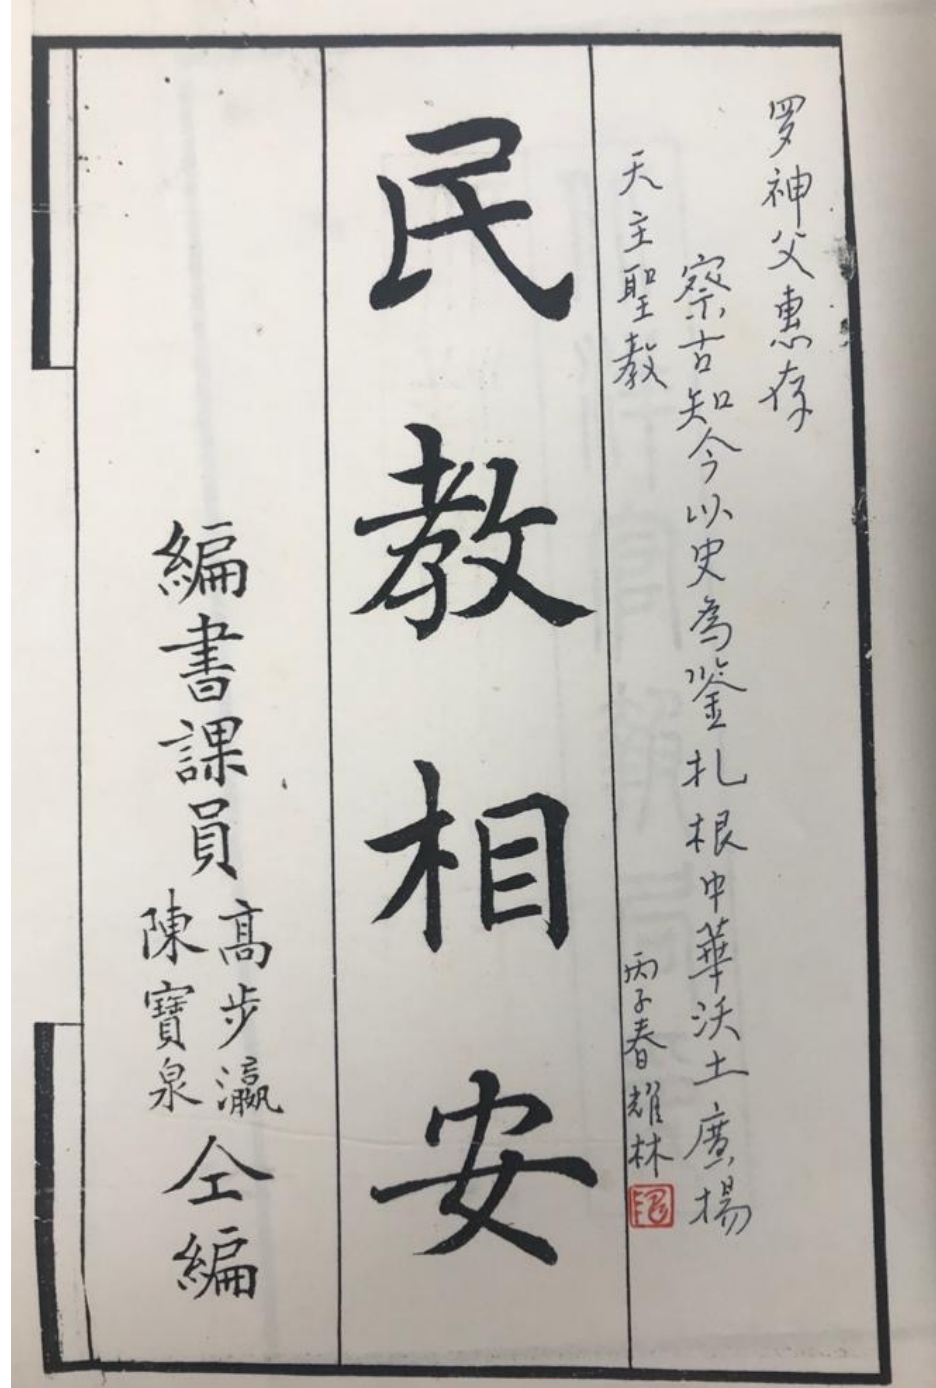 罗神父惠存
察古知今以史為鉴扎根中華沃土廣揚
天主聖教
丙子春耀林
民教相安
編書課員
高步瀛
陳寶泉
仝編